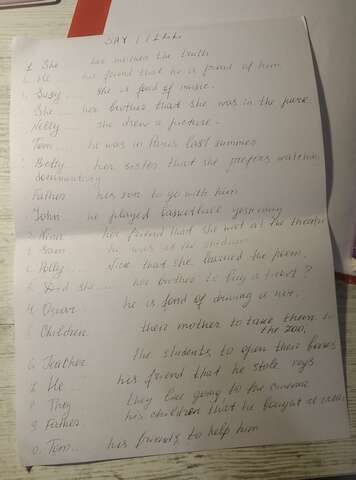 SAY
1. She ... her mother the truth
2. He ... his friend that he is proud of him.
Susy ... she is fond of music.
She ... her brother that she was in the park.
Nelly ... she drew a picture.
Tom ... he was in Paris last summer
Betty ... her sister that she prefers watching
Father ... his son to go with him
John ... he played basketball yesterday
Nina ... her friend that she was at the theatre
Sam ... he was at the stadium
Polly ... Nick that she learned the poem.
Did she ... her brother to buy a ticket?
Oscar ... he is fond of driving a car.
Children ... their mother to take them to
the zoo.
Teacher ... the students to open their books
He ... his friend that he stole
They ... they like going to the cinema
Father ... his children that he bought
Tom ... his friends to help him